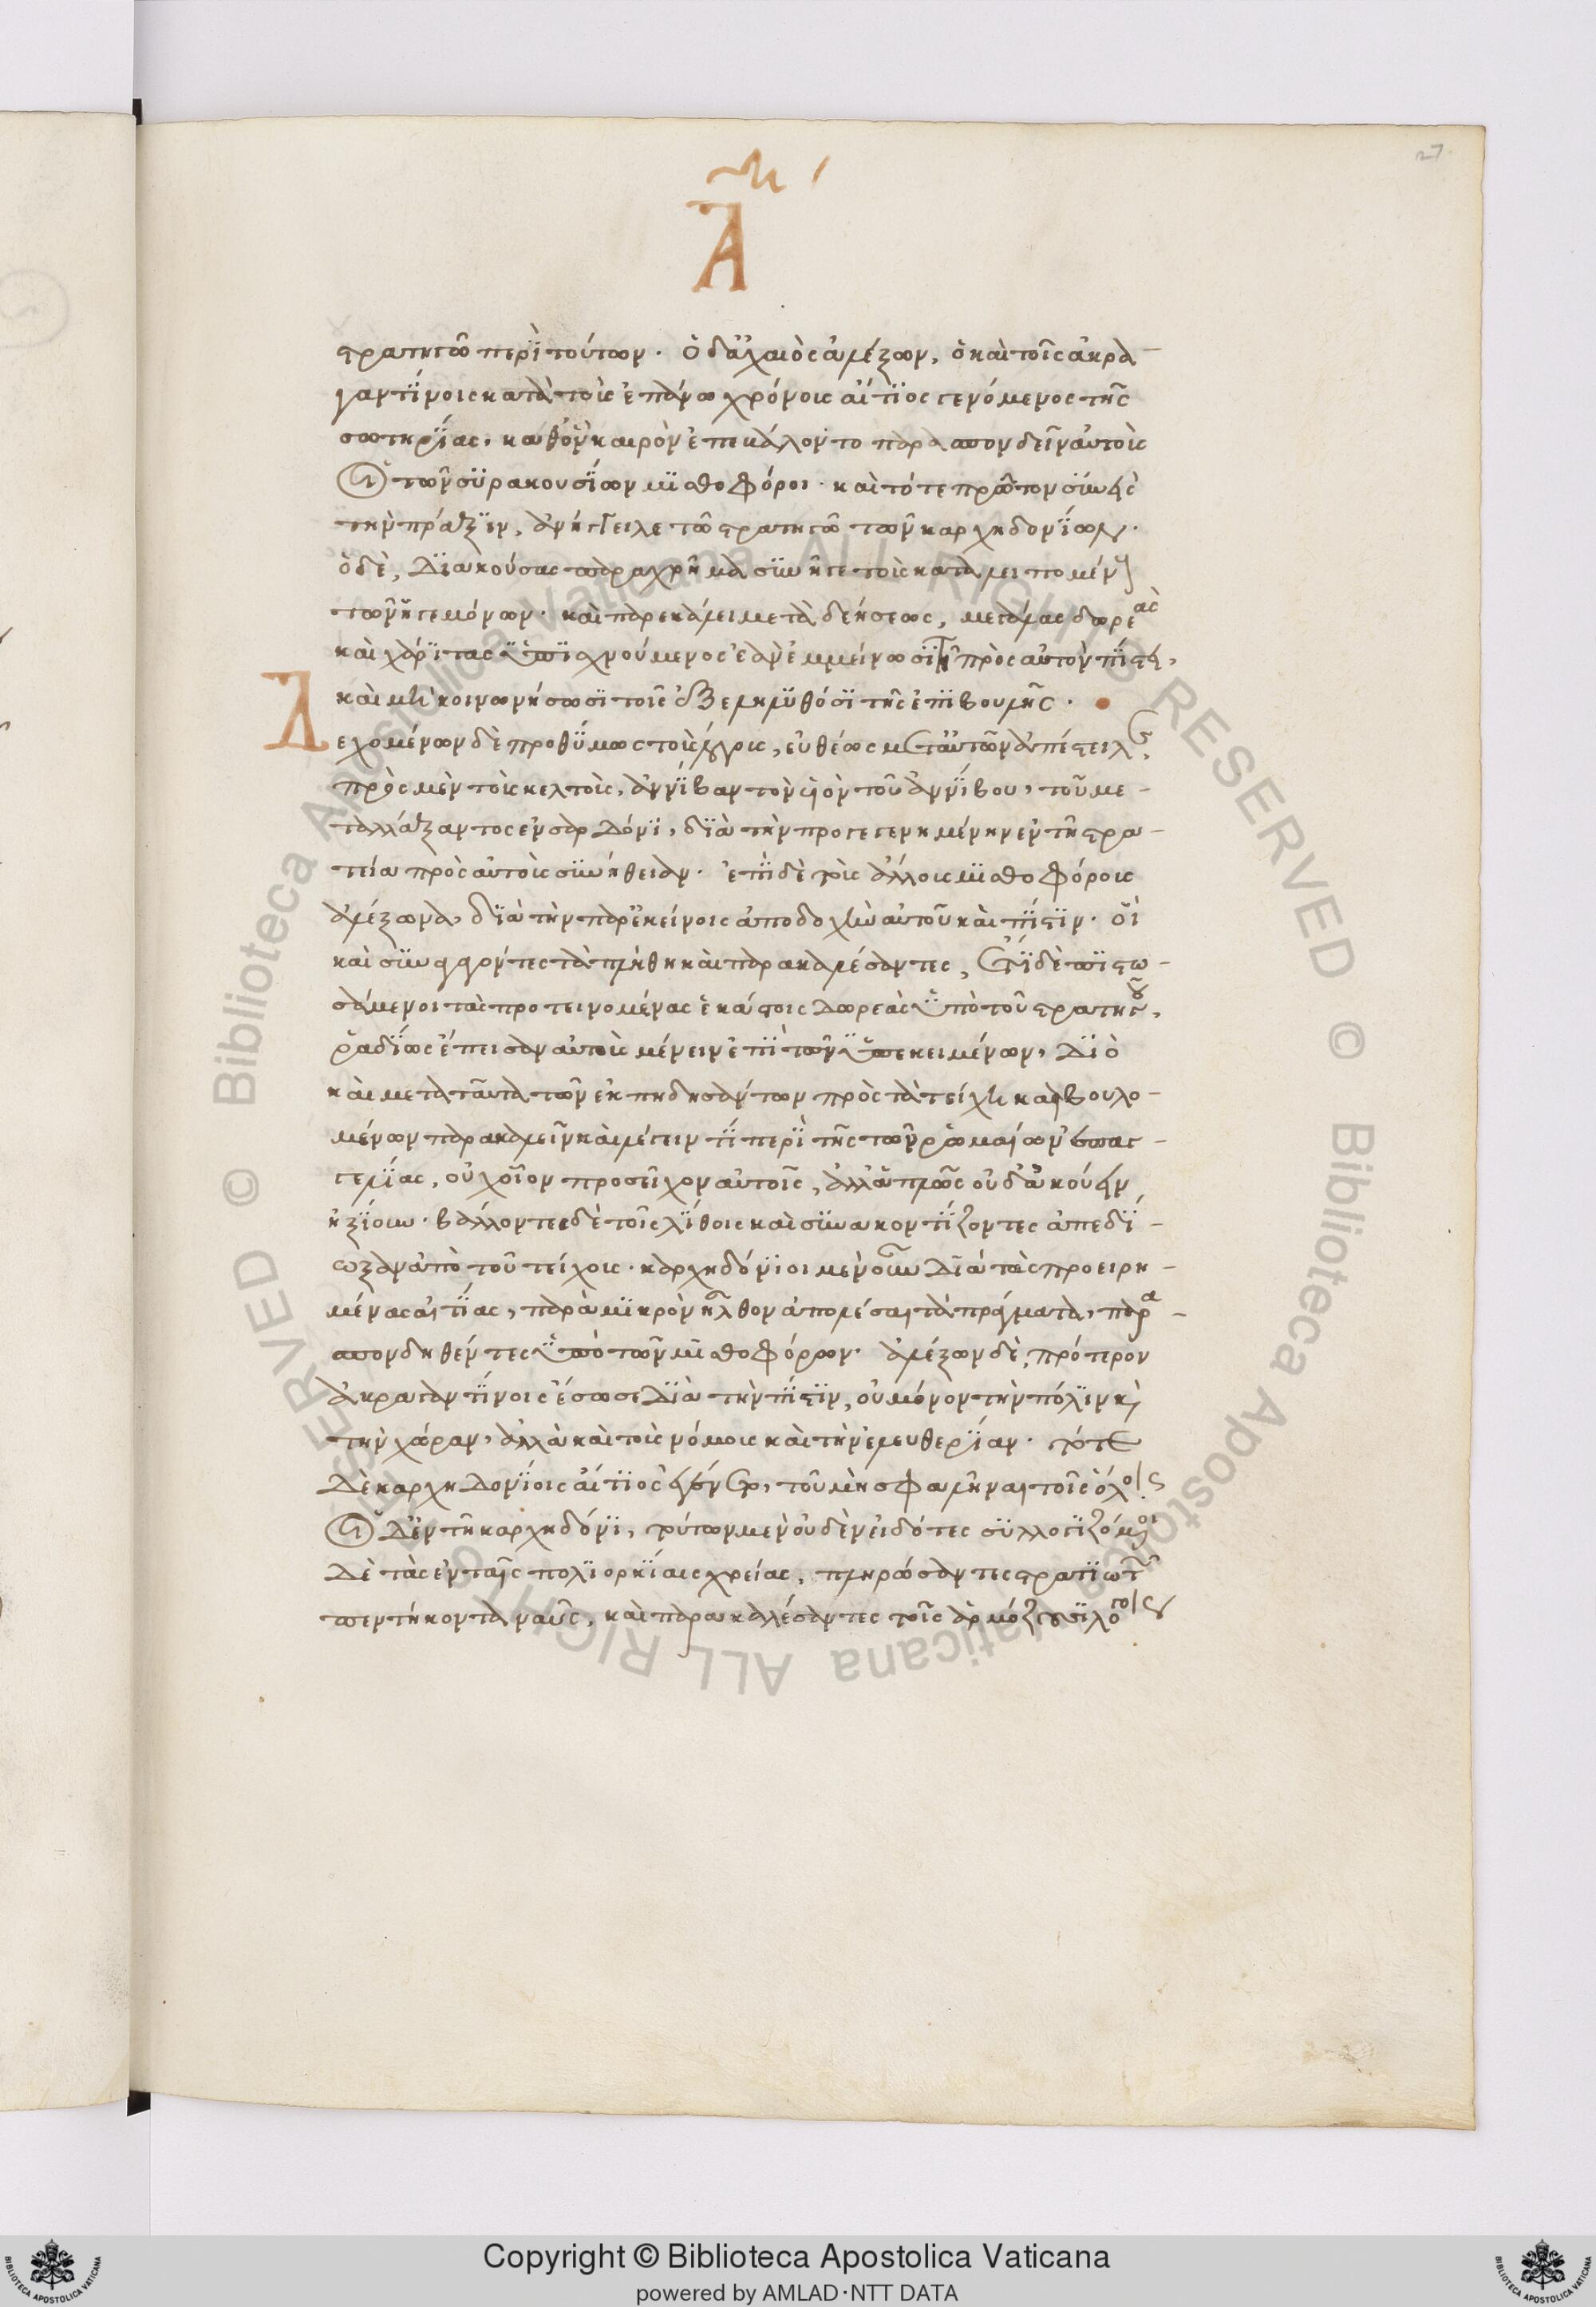 27
Α
στρατηγῶ περὶ τούτων. ὁ δ' ἀχαιὸς ἀλέξων, ὁ καὶ τοῖς ἀκρα-
γαντίνοις κατὰ τοὺς ἐπάνω χρόνους αἴτιος γενόμενος τῆς
σωτηρίας, καθ' ὃν καιρὸν ἐπεβάλοντο παρασπονδεῖν αὐτοὺς
οἱ τῶν συρακουσίων μισθοφόροι. καὶ τότε πρῶτον συνεὶς
τὴν πρᾶξιν, ἀνήγγειλε τῶ στρατηγῶ τῶν καρχηδονίων.
ὁ δὲ, διακούσας παραχρῆμα συνῆγε τοὺς καταλειπομένους
τῶν ἡγεμόνων. καὶ παρεκάλει μετὰ δεήσεως, μεγάλας δωρεὰς
καὶ χάριτας ὑπισχνούμενος ἐὰν ἐμμείνωσι τῆ πρὸς αὐτὸν πίστει,
καὶ μὴ κοινωνήσωσι τοῖς ἐξεληλυθόσι τῆς ἐπιβουλῆς.
Δεχομένων δὲ προθύμως τοὺς λόγους, εὐθέως μετ' αὐτῶν ἀπέστειλε,
πρὸς μὲν τοὺς κελτοὺς, ἀννίβαν τὸν υἱὸν τοῦ ἀννίβου, τοῦ με-
ταλλάξαντος ἐν σαρδόνι, διὰ τὴν προγεγενημένην ἐν τῆ στρα-
τεία πρὸς αὐτοὺς συνήθειαν. ἐπὶ δὲ τοὺς ἄλλους μισθοφόρους
ἀλέξωνα, διὰ τὴν παρ' ἐκείνοις ἀποδοχὴν αὐτοῦ καὶ πίστιν. οἳ
καὶ συναγαγόντες τὰ πλήθη καὶ παρακαλέσαντες, ἔτι δὲ πιστω-
σάμενοι τὰς προτεινομένας ἑκάστοις δωρεὰς ὑπὸ τοῦ στρατηγοῦ,
ῥαδίως ἔπεισαν αὐτοὺς μένειν ἐπὶ τῶν ὑποκειμένων, διὸ
καὶ μετὰ ταῦτα τῶν ἐκπηδησάντων πρὸς τὰ τείχη καὶ βουλο-
μένων παρακαλεῖν καὶ λέγειν τί περὶ τῆς τῶν ῥωμαίων ἐπαγ-
γελίας, οὐχ οἷον προσεῖχον αὐτοῖς, ἀλλ' ἁπλῶς οὐδ' ἀκούειν
ἠξίουν. βάλλοντες δὲ τοῖς λίθοις καὶ συνακοντίζοντες ἀπεδί-
ωξαν ἀπὸ τοῦ τείχους. καρχηδόνιοι μὲν οὖν διὰ τὰς προειρη-
μένας αἰτίας, παρὰ μικρὸν ἦλθον ἀπολέσαι τὰ πράγματα, παρα-
σπονδηθέντες ὑπὸ τῶν μισθοφόρων. ἀλέξων δὲ, πρότερον
ἀκραγαντίνοις ἔσωσε διὰ τὴν πίστιν, οὐ μόνον τὴν πόλιν καὶ
τὴν χώραν, ἀλλὰ καὶ τοὺς νόμους καὶ τὴν ἐλευθερίαν. τότε
δὲ καρχηδονίοις αἴτιος ἐγένετο, τοῦ μὴ σφαλῆναι τοῖς ὅλοις
οἱ δ' ἐν τῆ καρχηδόνι, τούτων μὲν οὐδὲν εἰδότες συλλογιζόμενοι
δὲ τὰς ἐν ταῖς πολιορκίαις χρείας, πληρώσαντες στρατιωτῶν
πεντήκοντα ναῦς, καὶ παρακαλέσαντες τοῖς ἁρμόζουσι λόγοις